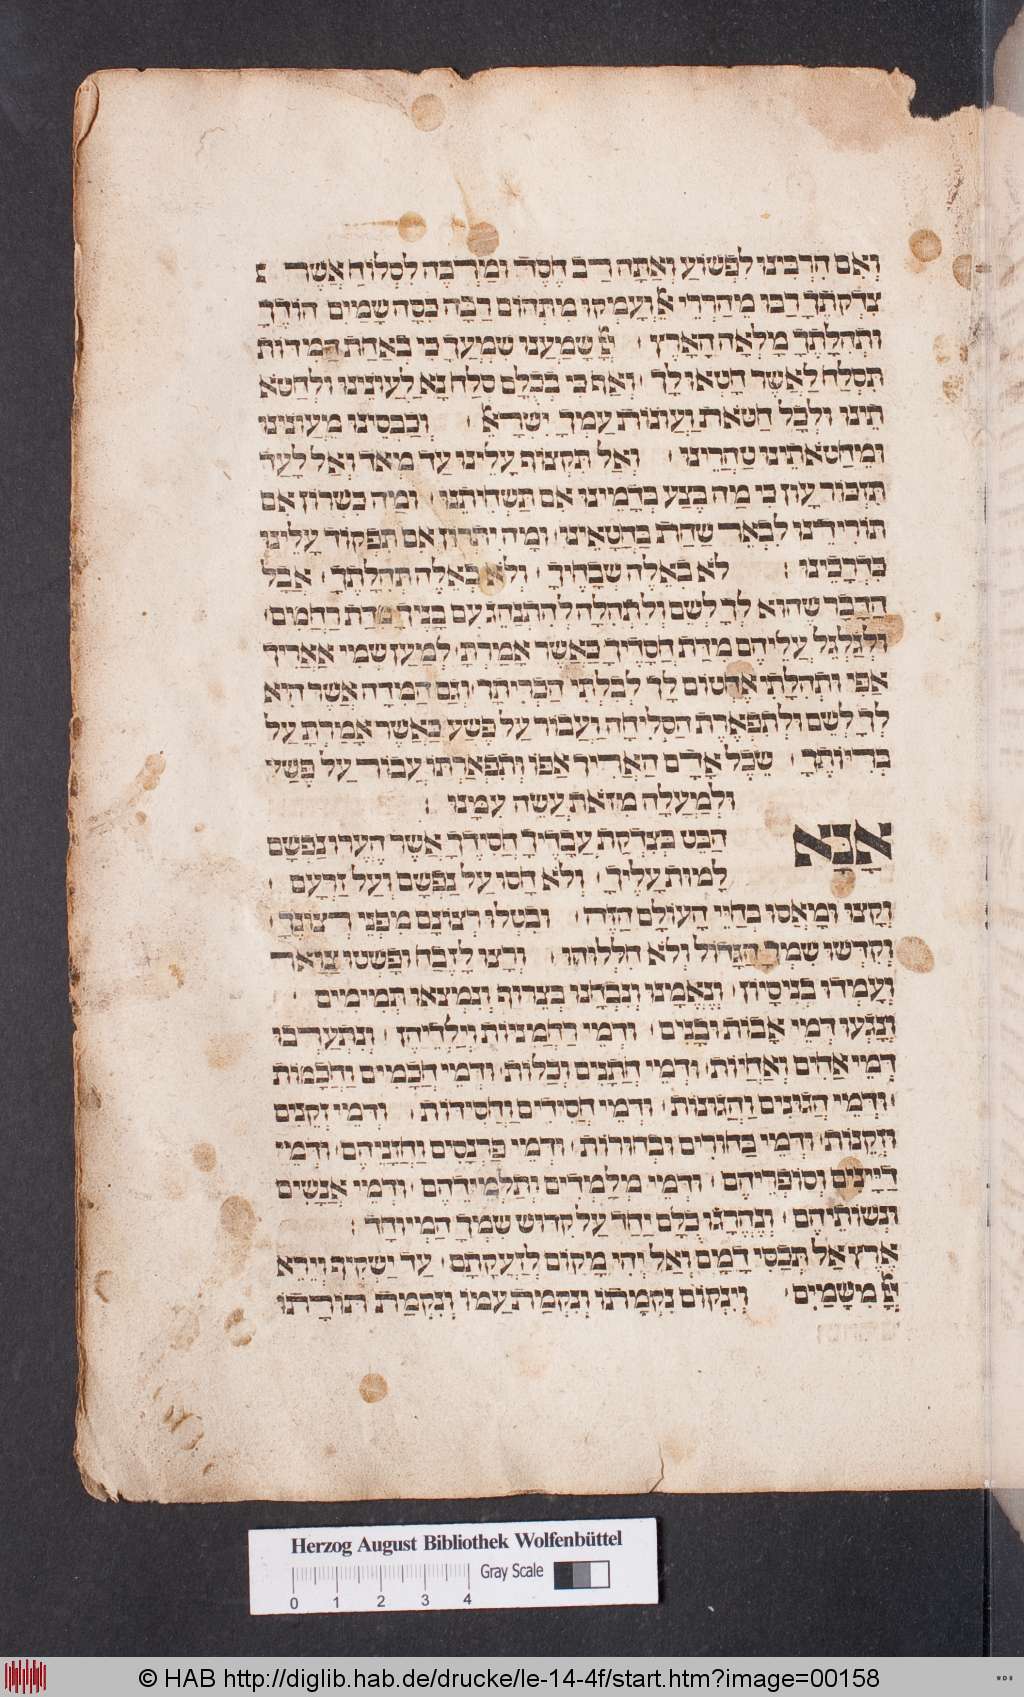 וְאִם הִרְבִּינוּ לִפְשׁוֹעַ וְאַתָּה רַב חֶסֶד וּמַרְבֶּה לִסְלוֹחַ אֲשֶׁר
צִדְקָתְךָ רַבּוּ מֵהַרְרֵי אֵל וְעָמְקוּ מִתְּהוֹם רַבָּה כִּסָּה שָׁמַיִם הוֹדֶךָ
וּתְהִלָּתְךָ מָלְאָה הָאָרֶץ שָׁמַעְנוּ שִׁמְעֲךָ כִּי בְּאַחַת הַמִּדּוֹת
תִּסְלַח לַאֲשֶׁר חָטְאוּ לָךְ וְאַף כִּי בְּכֻלָּם סְלַח נָא לַעֲוֹנֵינוּ וּלְחַטֹּא
תֵינוּ וּלְכָל חַטֹּאת וַעֲוֹנוֹת עַמְּךָ יִשְׂרָאֵל וְכַבְּסֵינוּ מֵעֲוֹנֵינוּ
וּמֵחַטֹּאתֵינוּ טַהֲרֵינוּ וְאַל תִּקְצוֹף עָלֵינוּ עַד מְאֹד וְאַל לָעַד
תִּזְכּוֹר עָוֹן כִּי מַה בֶּצַע בְּדָמֵינוּ אִם תַּשְׁחִיתֵנוּ וּמַה כִּשְׁרוֹן אִם
תוֹרִידֵנוּ לִבְאֵר שַׁחַת בַּחֲטָאֵינוּ וּמַה יִּתְרוֹן אִם תִּפְקוֹד עָלֵינוּ
כִּדְרָכֵינוּ לֹא בְאֵלֶּה שְׁבָחֶיךָ וְלֹא בְאֵלֶּה תְהִלָּתֶךָ אֲבָל
הַדָּבָר שֶׁהוּא לְךָ לְשֵׁם וְלִתְהִלָּה לְהִתְנַהֵג עִם בָּנֶיךָ מִדַּת רַחֲמִים
וּלְגַלְגֵּל עֲלֵיהֶם מִדַּת חֲסָדֶיךָ כַּאֲשֶׁר אָמַרְתָּ לְמַעַן שְׁמִי אַאֲרִיךְ
אַפִּי וּתְהִלָּתִי אֶחֱטוֹם לָךְ לְבִלְתִּי הַכְרִיתֶךָ וְגַם הַמִּדָּה אֲשֶׁר הִיא
לְךָ לְשֵׁם וּלְתִפְאֶרֶת הַסְּלִיחָה וַעֲבוֹר עַל פֶּשַׁע כַּאֲשֶׁר אָמַרְתָּ עַל
בְּרִיּוֹתֶךָ שֵׂכֶל אָדָם הַאֲרִיךְ אַפּוֹ וְתִפְאַרְתּוֹ עֲבוֹר עַל פָּשַׁע
וּלְמַעְלָה מִזֹּאת עֲשֵׂה עִמָּנוּ
אָנָּא הַבֵּט בְּצִדְקַת עֲבָדֶיךָ חֲסִידֶךָ אֲשֶׁר הֶעֱרוּ נַפְשָׁם
לָמוּת עָלֶיךָ וְלֹא חָסוּ עַל נַפְשָׁם וְעַל זַרְעָם
וְקָצוּ וּמָאֲסוּ בְּחַיֵּי הָעוֹלָם הַזֶּה וּבִטְּלוּ רְצוֹנָם מִפְּנֵי רְצוֹנֶךָ
וְקִדְּשׁוּ שִׁמְךָ הַגָּדוֹל וְלֹא חִלְּלוּהוּ וְרָצוּ לָזֶבַח וּפָשְׁטוּ צַוָּאר
וְעָמְדוּ בְּנִיסָיוֹן וְנֶאֱמָנוּ וְנִבְחָנוּ בְּצֵרוּף וְנִמְצְאוּ תְּמִימִים
וְנָגְעוּ דְּמֵי אָבוֹת וּבָנִים וּדְמֵי רַחֲמָנִיּוֹת וְיַלְדֵיהֶן וְנִתְעָרְבוּ
דְּמֵי אַחִים וַאֲחָיוֹת וּדְמֵי חֲתָנִים וְכַלּוֹת וּדְמֵי חֲכָמִים וַחֲכָמוֹת
וּדְמֵי הֲגוּנִים וַהֲגוּנוֹת וּדְמֵי חֲסִידִים וַחֲסִידוֹת וּדְמֵי זְקֵנִים
וּזְקֵנוֹת וּדְמֵי בַּחוּרִים וּבְחוּרוֹת וּדְמֵי פַּרְנָסִים וְחַזָּנֵיהֶם וּדְמֵי
דַּיָּינִים וְסוֹפְרֵיהֶם וּדְמֵי מְלַמְּדִים וְתַלְמִידֵיהֶם וּדְמֵי אֲנָשִׁים
וּנְשׁוֹתֵיהֶם וְנֶהֱרָגוּ כֻּלָּם יַחַד עַל קִדּוּשׁ שִׁמְךָ הַמְיוּחָד
אֶרֶץ אַל תְּכַסִּי דָּמָם וְאַל יְהִי מָקוֹם לְזַעֲקָתָם עַד יַשְׁקִיף וְיֵרֶא
מִשָּׁמַיִם וְיִנְקוֹם נִקְמָתוֹ וְנִקְמַת עַמּוֹ וְנִקְמַת תּוֹרָתוֹ
Herzog August Bibliothek Wolfenbüttel
Gray Scale
0 1 2 3 4
© HAB http://diglib.hab.de/drucke/le-14-4f/start.htm?image=00158